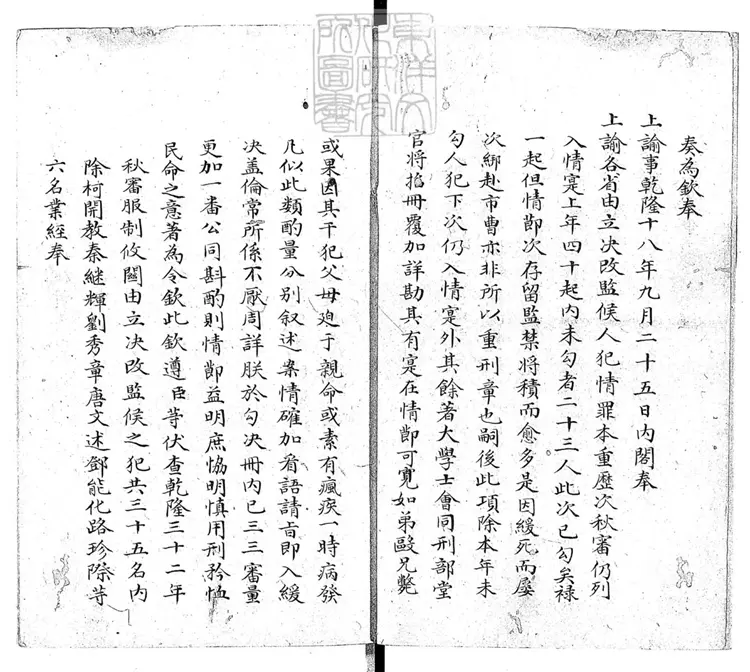 奏為欽奉
上諭事乾隆十八年九月二十五日内閣奉
上諭各省由立决改監候人犯情罪本重歷次秋審仍列
入情寔上年四十起内未勾者二十三人此次已勾矣祿
一起但情節次存留監禁將積而愈多是因緩死而屡
次綁赴市曹亦非所以重刑章也嗣後此項除本年未
勾人犯下次仍入情寔外其餘著大學士會同刑部堂
官将招冊覆加詳勘其有寔在情節可寬如弟毆兄斃
或果因其干犯父母廹于親命或素有瘋疾一時病發
凡似此類酌量分别叙述案情確加看語請旨即入緩
决盖倫常所係不厭周詳朕於勾决冊内已三三審量
更加一番公同斟酌則情節益明庶恊明慎用刑矜恤
民命之意著為令欽此欽遵臣等伏查乾隆三十二年
秋審服制攸關由立决改監候之犯共三十五名内
除柯開教秦継輝劉秀章唐文述鄧能化路珍際等
六名業經奉
東洋文化研究所圖書